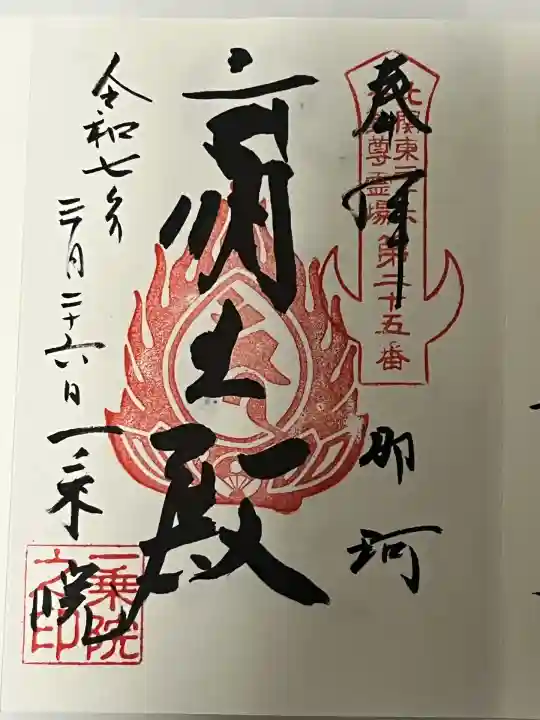 奉拝
那珂
北関東三十六
不動尊霊場
第二十五番
毘沙門殿
令和七年
三月二十六日
一乗院
一乗院
之印